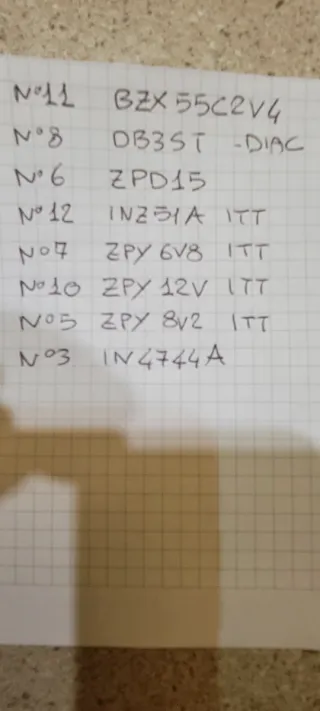 N°11 BZX55C2V4
N°8 DB3ST -DIAC
N°6 ZPD15
N°12 INZ51A ITT
N°7 ZPY 6V8 ITT
N°10 ZPY 12V ITT
N°5 ZPY 8V2 ITT
N°3 IN4744A